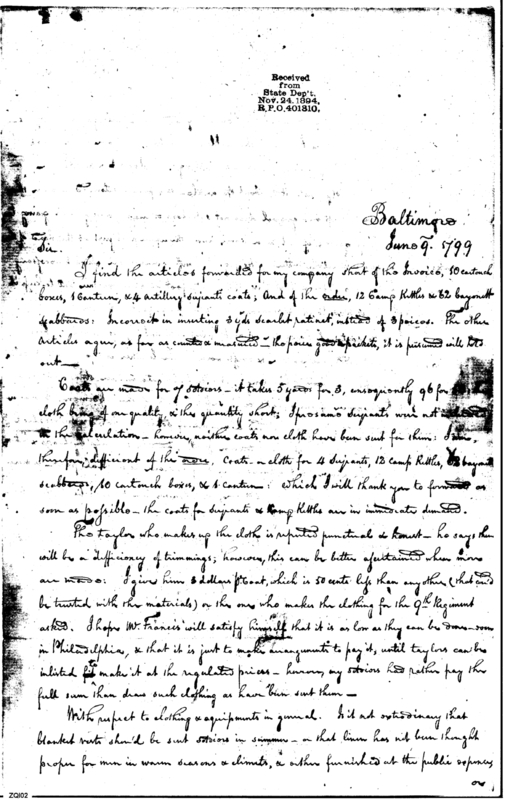 Received
from
State Dep't.
Nov. 24. 1894,
R.P.O. 401310.
Baltimore
June 9. 1799
Sir.
I find the articles forwarded for my company short of the Invoice, 10 cartouch
boxes, 1 Canteen, & 4 artillery serjeants coats; And of the order, 12 Camp Kettles & 32 bayonett
scabbards: Incorrect in inserting 3 yds scarlet ratinet, instead of 3 peices. The other
Articles agree, as far as counted & measured – the peices
out –
Coats are made for 7 – it takes 5 yards for 3, consequently 96 for
cloth being of one quality, & the quantity short; I presume serjeants were not
in the calculation – however, neither coats nor cloth have been sent for them: I am,
therefore, deficient of the Coats or cloth for 4 Serjeants, 12 Camp Kettles, 32 bayonet
scabbards, 10 cartouch boxes, & 1 canteen: which I will thank you to forward as
soon as possible – the coats for serjeants & Camp Kettles are in immediate demand.
The taylor who makes up the cloth is reputed punctual & honest – he says there
will be a deficiency of trimmings; however, this can be better ascertained when more
are made: I give him 3 dollars pr Coat, which is 50 cents less than any other (that could
be trusted with the materials) or the one who makes the clothing for the 9th Regiment
asked. I hope Mr. Francis will satisfy himself that it is as low as they can be done
in Philadelphia, & that it is just to make arrangements to pay it, until taylors can be
inlisted to make it at the regulated prices – however, my had rather pay the
full sum than draw such clothing as have been sent them –
With respect to clothing & equipments in general. Is it not extraordinary that
blanket vests should be sent in summer – or that linen has not been thought
proper for men in warm seasons & climates, & either furnished at the public expence,
or